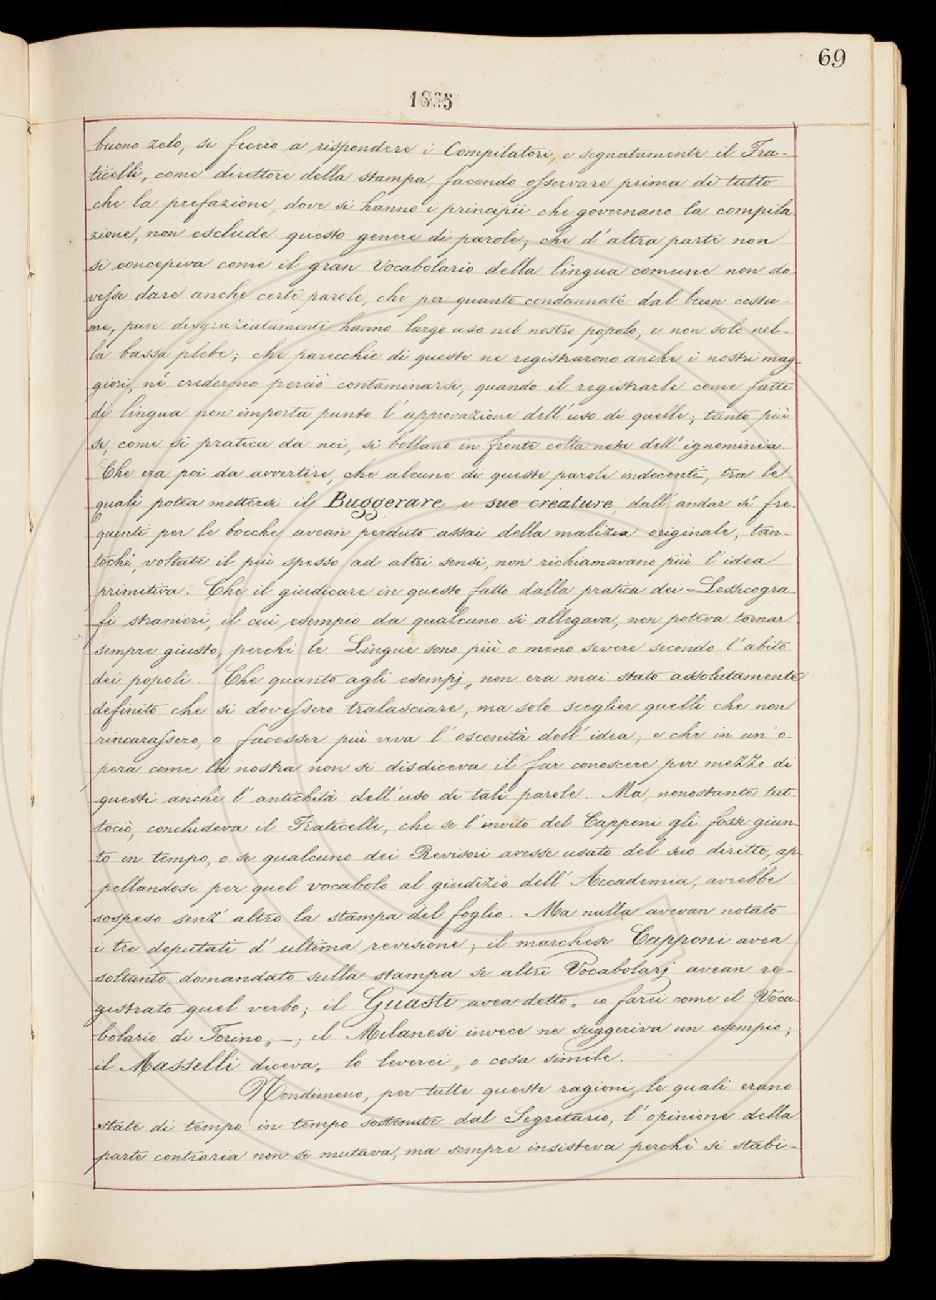 69
1865
buono zelo, si fecero a rispondere i Compilatori, e segnatamente il Fra-
ticelli, come direttore della stampa, facendo osservare prima di tutto
che la prefazione, dove si hanno i principii che governano la compila
zione, non esclude questo genere di parole; che d'altra parte non
si concepiva come il gran Vocabolario della lingua comune non do
vesse dare anche certe parole, che per quanto condannate dal buon costu-
me, pure disgraziatamente hanno largo uso nel nostro popolo, e non solo nel-
la bassa plebe; che parecchie di queste ne registrarono anche i nostri mag-
giori, né crederono perciò contaminarsi, quando il registrarle come fatti
di lingua non importa punto l'approvazione dell'uso di quelle; tanto più
se, come si pratica da noi, si bollano in fronte colla nota dell'ignominia.
Che era poi da avvertire, che alcune di queste parole indecenti, tra le
quali potea mettersi il Buggerare e sue creature dall'andar sì fre-
quenti per le bocche avean perduto assai della malizia originale, tan-
tochè, voltate il più spesso ad altri sensi, non richiamavano più l'idea
primitiva. Che il giudicare in questo fatto dalla pratica dei Lessicogra
fi stranieri, il cui esempio da qualcuno si allegava, non poteva tornar
sempre giusto, perchè le Lingue sono più o meno severe secondo l'abito
dei popoli. Che quanto agli esempj, non era mai stato assolutamente
definito che si dovessero tralasciare, ma solo sceglier quelli che non
rincarassero, o facesser più viva l'oscenità dell'idea; e che in un'o-
pera come la nostra non si disdiceva il far conoscere per mezzo di
questi anche l'antichità dell'uso di tali parole. Ma, nonostante tut-
tociò, conchiudeva il Fraticelli, che se l'invito del Capponi gli fosse giun
to in tempo, o se qualcuno dei Revisori avesse usato del suo diritto, ap-
pellandosi per quel vocabolo al giudizio dell'Accademia, avrebbe
sospeso senz'altro la stampa del foglio. Ma nulla avevan notato
i tre deputati d'ultima revisione; il marchese Capponi avea
soltanto domandato sulla stampa se altri Vocabolarj avean re-
gistrato quel verbo; il Guasti avea detto „ io farei come il Voca
bolario di Torino „ —; il Milanesi invece ne suggeriva un esempio;
il Masselli diceva „ lo leverei „ o cosa simile.
Nondimeno, per tutte queste ragioni, le quali erano
state di tempo in tempo sostenute dal Segretario, l'opinione della
parte contraria non si mutava, ma sempre insisteva perchè si stabi-